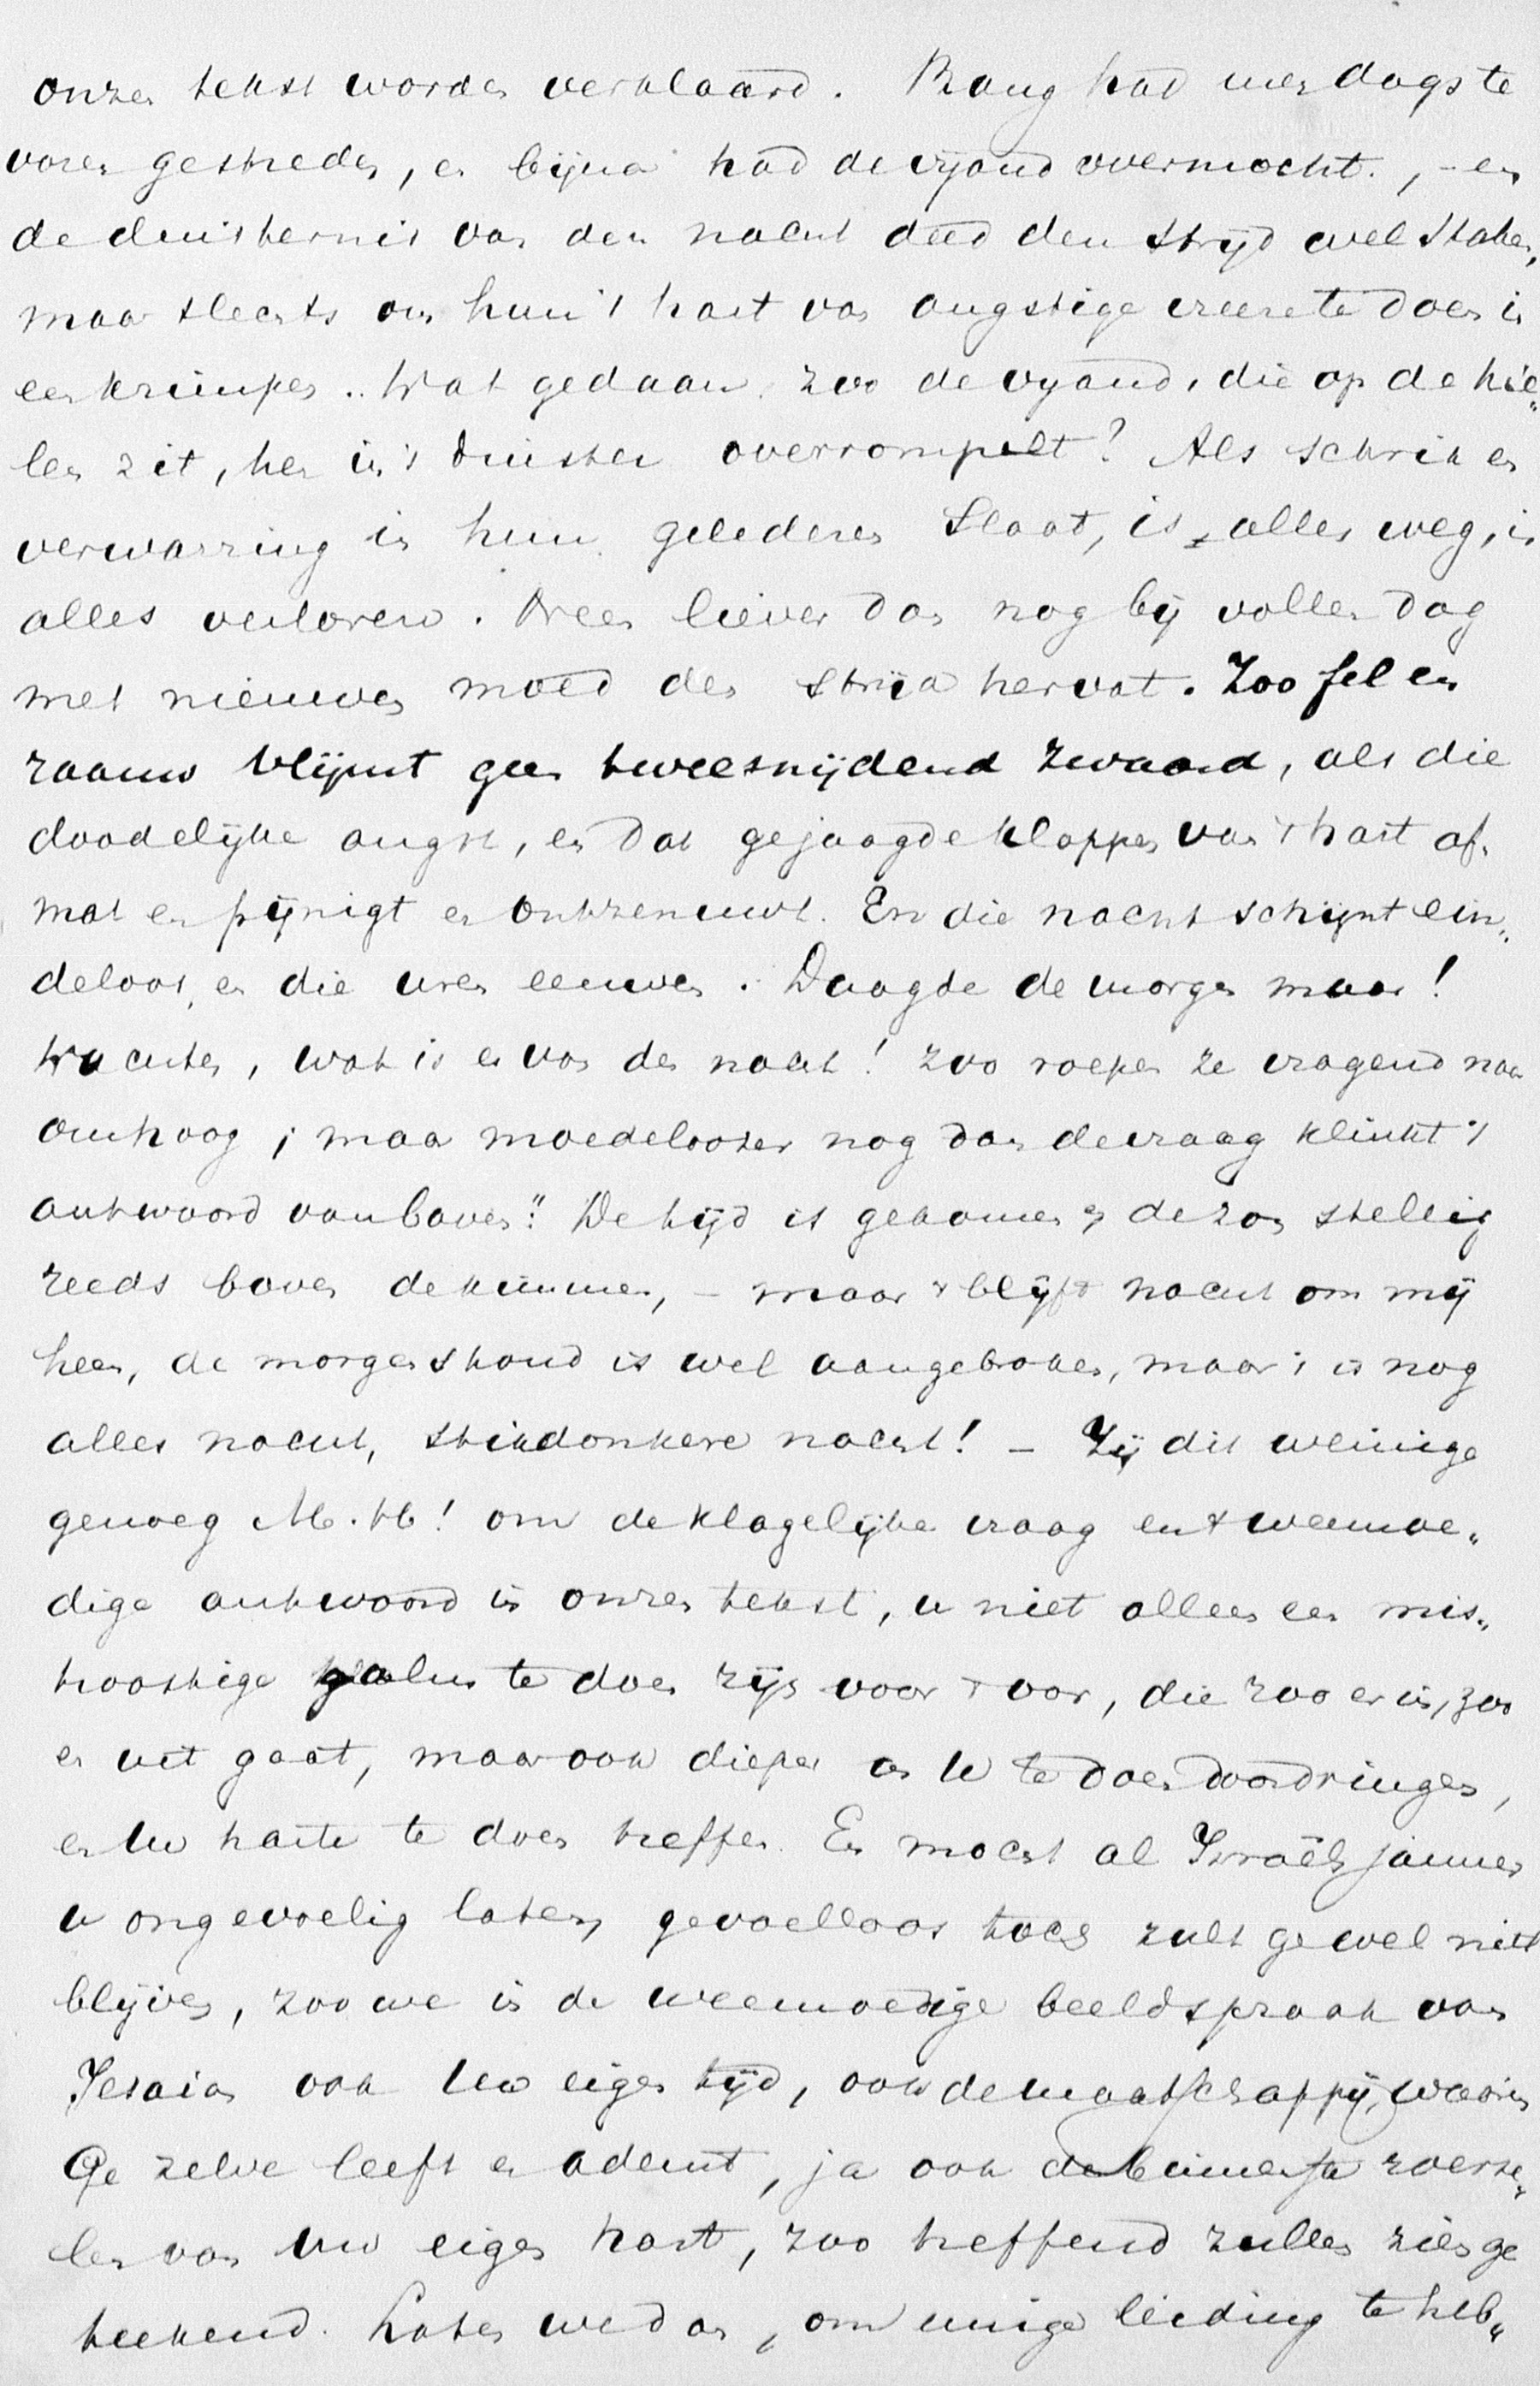 onzen tekst worden verklaard. Bang had men daags te
voren gestreden, en bijna had de vijand overmocht, - en
de duisternis van den nacht deed den strijd wel staken,
maar slechts om hun 't hart van angstige vreeze te doen in
een krimpen.. Wat gedaan, zoo de vyand, die op de hie„
len zit, hen in 't duister overrompelt? Als schrik en
verwarring in hun gelederen slaat, is alles weg, is
alles verloren. Neen liever dan nog bij vollen dag
met nieuwen moed den strijd hervat. Zoo fel en
raauw vlijmt geen tweesnijdend zwaard, als die
doodelijke angst, en dat gejaagde kloppen van 't hart af„
mat en pijnigt en ontzenuwt. En die nacht schijnt ein„
deloos, en die uren eeuwen. Daagde de morgen maar!
Wachter, wat is er van den nacht! zoo roepen ze vragend naar
omhoog; maar moedeloozer nog dan de vraag klinkt 't
antwoord van boven: "De tijd is gekomen en de zon stellig
reeds boven de kimmen, - maar 't blijft nacht om mij
heen, de morgenstond is wel aangebroken, maar 't is nog
alles nacht, stikdonkere nacht! - Zij dit weinige
genoeg M. H! om de klagelijke vraag en 't weemoe„
dige antwoord in onzen tekst, u niet alleen een mis„
troostige galm te doen zijn voor 't oor, die zoo er in, zoo
er uit gaat, maar ook dieper in U te doen doordringen,
en Uw harte te doen treffen. En mocht al Israëls jammer
u ongevoelig laten, gevoelloos toch zult ge wel niet
blijven, zoo we in de weemoedige beeldspraak van
Jesaia ook Uw eigen tijd, ook de maatschappij, waarin
Ge zelve leeft en ademt, ja ook de binnenste roerse„
len van Uw eigen hart, zoo treffend zullen zien ge
teekend. Laten we dan, om eenige leiding te heb„